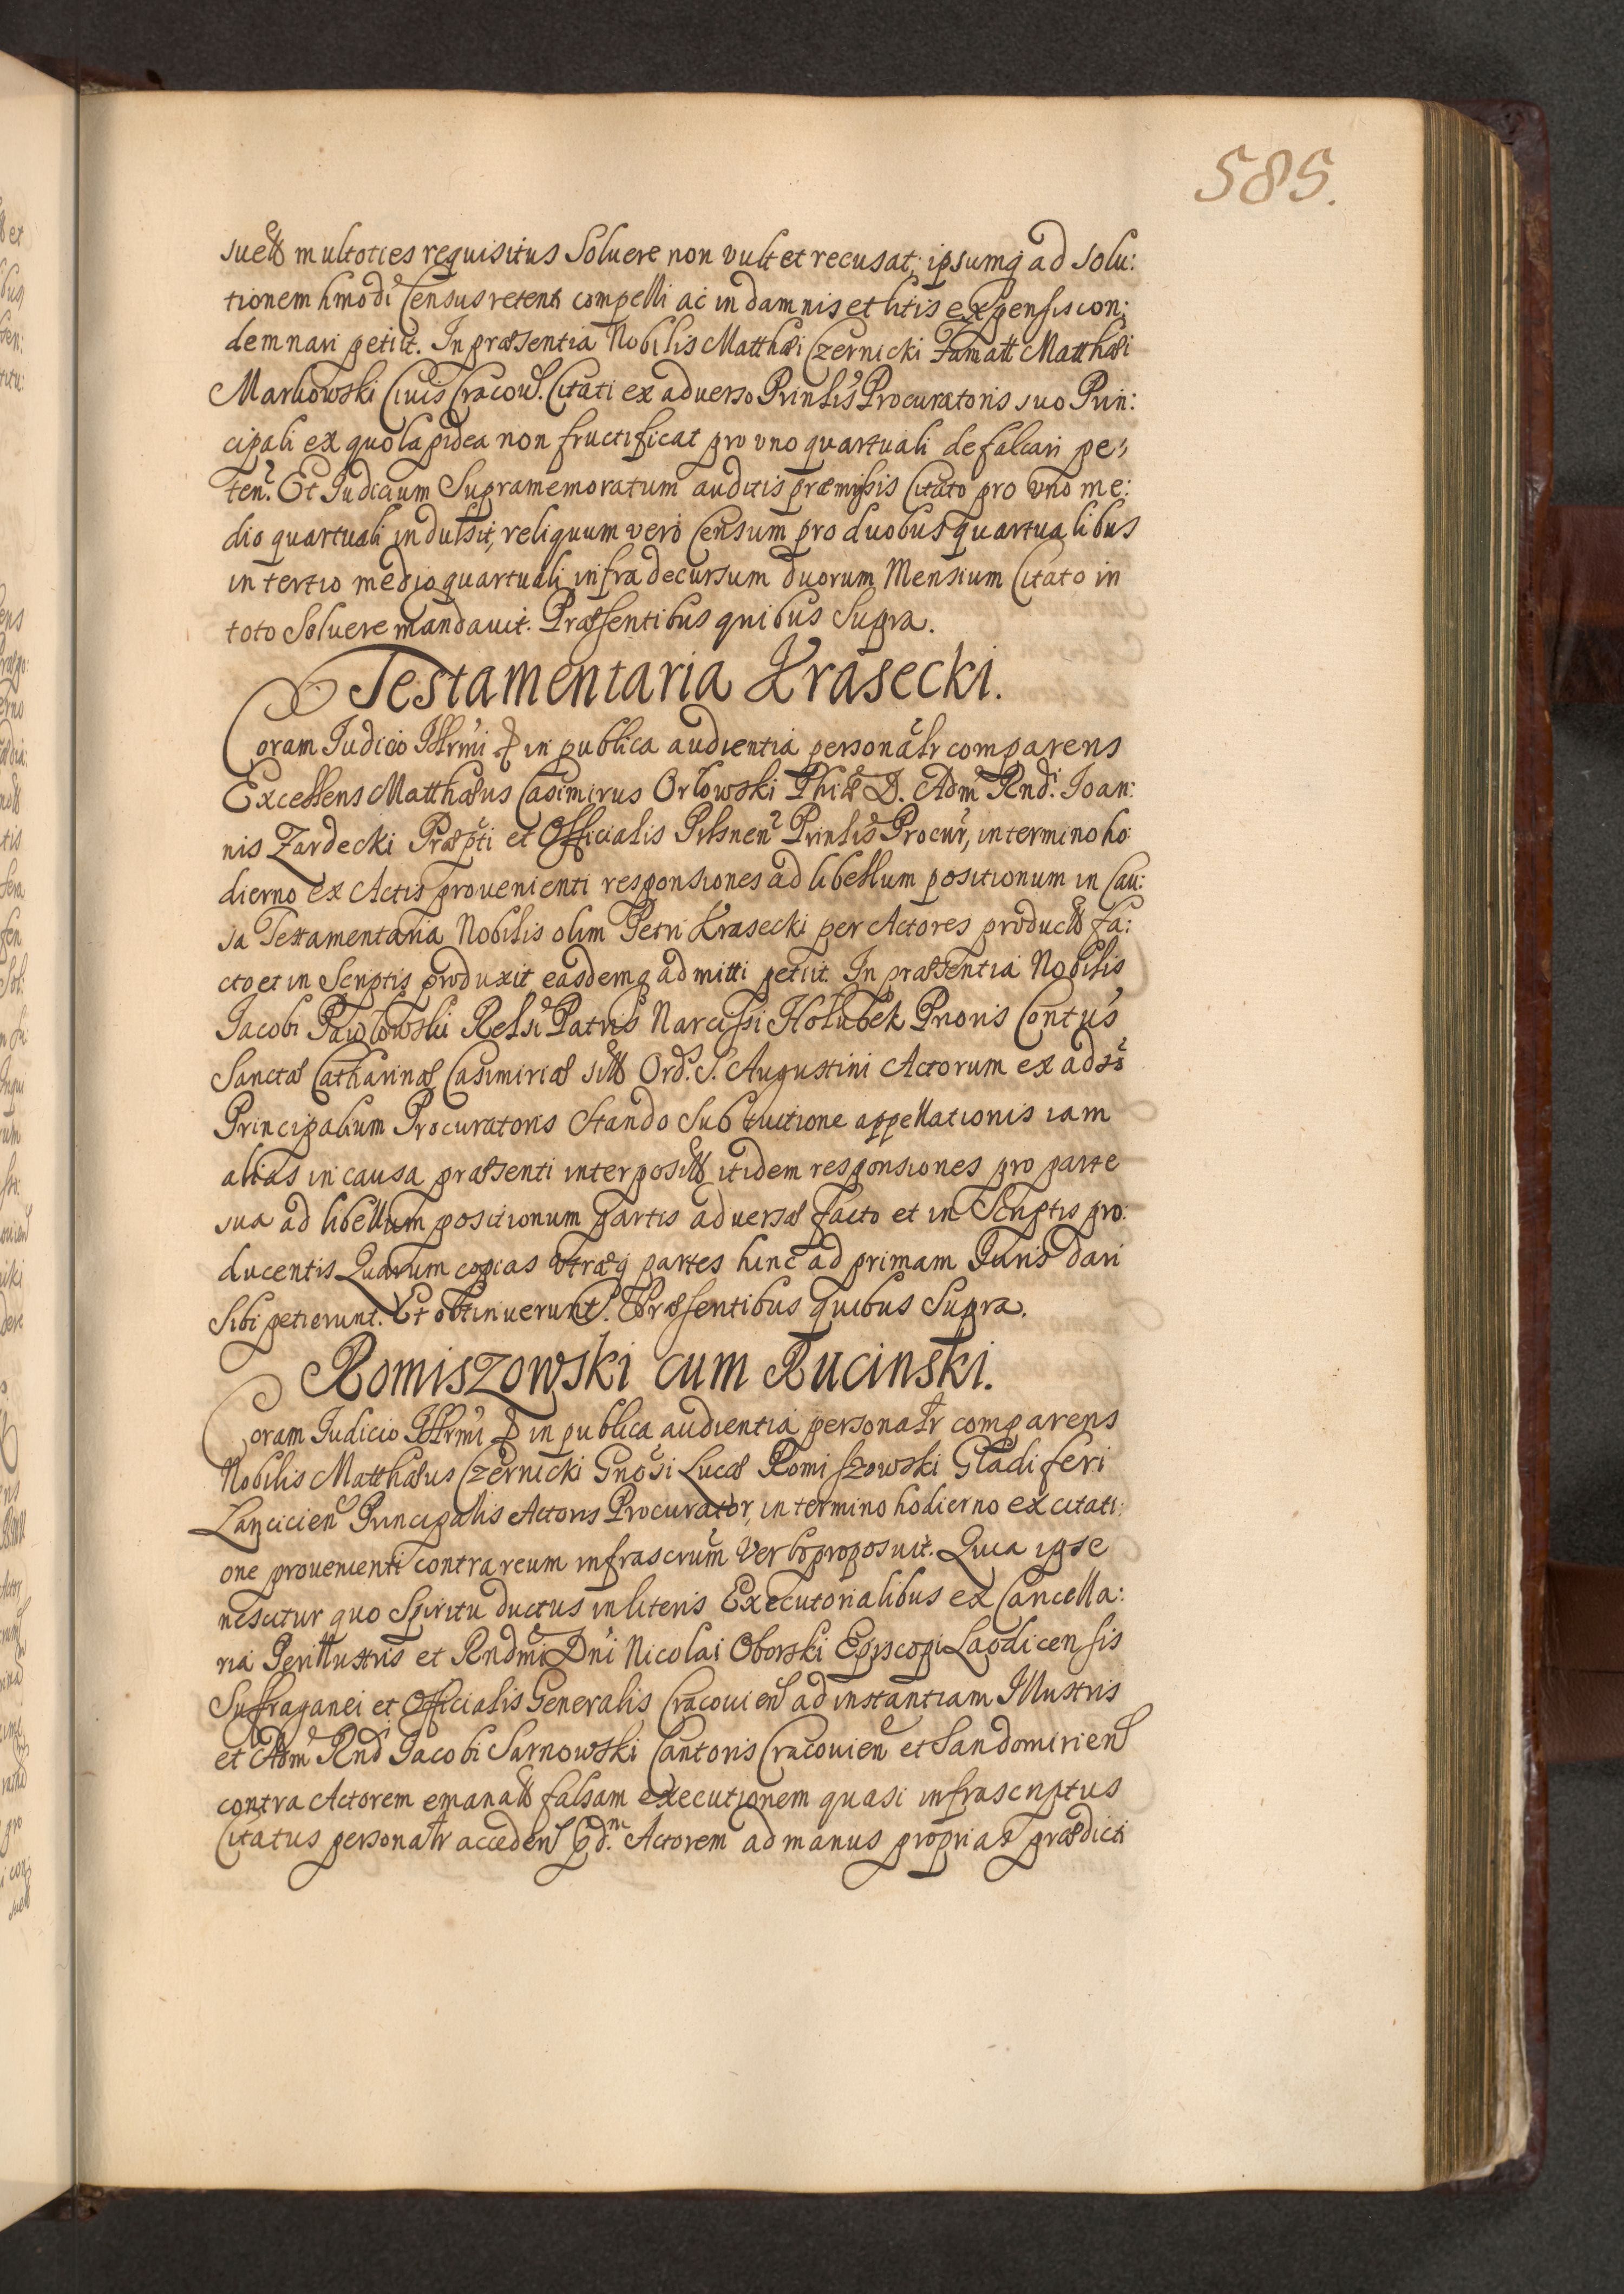 585.
suetis multoties requisitus Soluere non vult et recusat, ipsumq ad solu:
tionem hmodi Census retenti compelli ac in damnis et litis expensis con:
demnari petiit. In præsentia Nobilis Matthæi Czernicki Famati Matthæi
Markowski Ciuis Cracou. Citati ex aduerso Prinlis Procuratoris suo Prin:
cipali ex quo lapidea non fructificat pro vno quartuali defalcari pe:
ten. Et Iudicium Supramemoratum auditis præmissis Citato pro vno me:
dio quartuali indulsit, reliquum vero Censum pro duobus quartualibus
in tertio medio quartuali infra decursum duorum Mensium Citato in
toto Soluere mandauit. Præsentibus quibus Supra.
Testamentaria Krasecki.
Coram Iudicio Illrmi & in publica audientia personalr comparens
Excellens Matthæus Casimirus Orłowski Phiæ D. Adm Rnd. Ioan:
nis Zardecki Præpti et Officialis Pilsnen Prinlis Procur, in termino ho:
dierno ex Actis prouenienti responsiones ad libellum positionum in Cau:
sa Testamentaria Nobilis olim Petri Krasecki per Actores product fa:
cto et in Scriptis produxit easdemq admitti petiit. In præsentia Nobilis
Jacobi Pawłowski Relsi Patris Narcissi Hołubek Prioris Contus
Sanctæ Catharinæ Casimiriæ siti Ord. S. Augustini Actorum ex adso
Principalium Procuratoris Stando Sub tuitione appellationis iam
alias in causa præsenti interposit itidem responsiones pro parte
sua ad libellum positionum partis aduersæ facto et in Scriptis pro:
ducentis Quarum copias vtræq partes hinc ad primam Iuris dari
Sibi petierunt. Et obtinuerunt. Præsentibus quibus Supra.
Romiszowski cum Rucinski.
Coram Iudicio Illrmi & in publica audientia personalr comparens
Nobilis Matthæus Czernicki Gnosi Lucæ Romiszowski Gladiferi
Lancicien Principalis Actoris Procurator, in termino hodierno ex citati:
one prouenienti contra reum infrascrum Verbo proposuit. Quia ipse
nescitur quo Spiritu ductus in literis Executorialibus ex Cancella:
ria Perillustris et Rndmi Dni Nicolai Oborski Episcopi Laodicensis
Suffraganei et Officialis Generalis Cracouien ad instantiam Illustris
et Adm Rnd Jacobi Sarnowski Cantoris Cracouien et Sandomirien
contra Actorem emanat falsam executionem quasi infrascriptus
Citatus personalr acceden pdm Actorem ad manus proprias prædicti